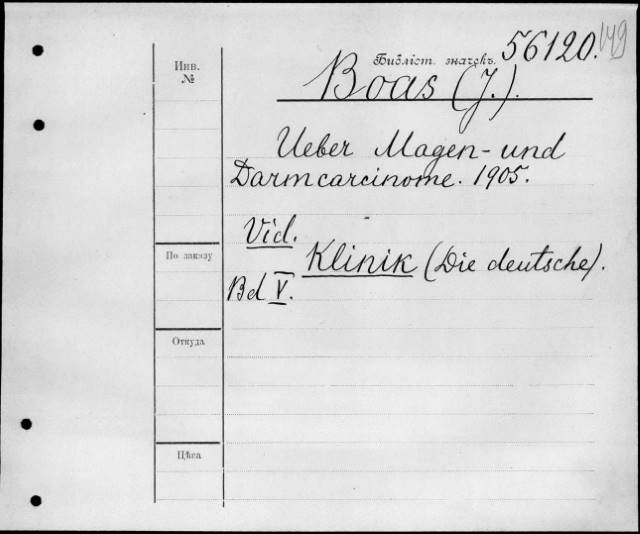 Библіст. значекъ 56120. 149
Инв.
№
Boas (J.).
Ueber Magen- und
Darmcarcinome. 1905.
Vid.
По заказу
Klinik (Die deutsche).
Bd V.
Откуда
Цѣса